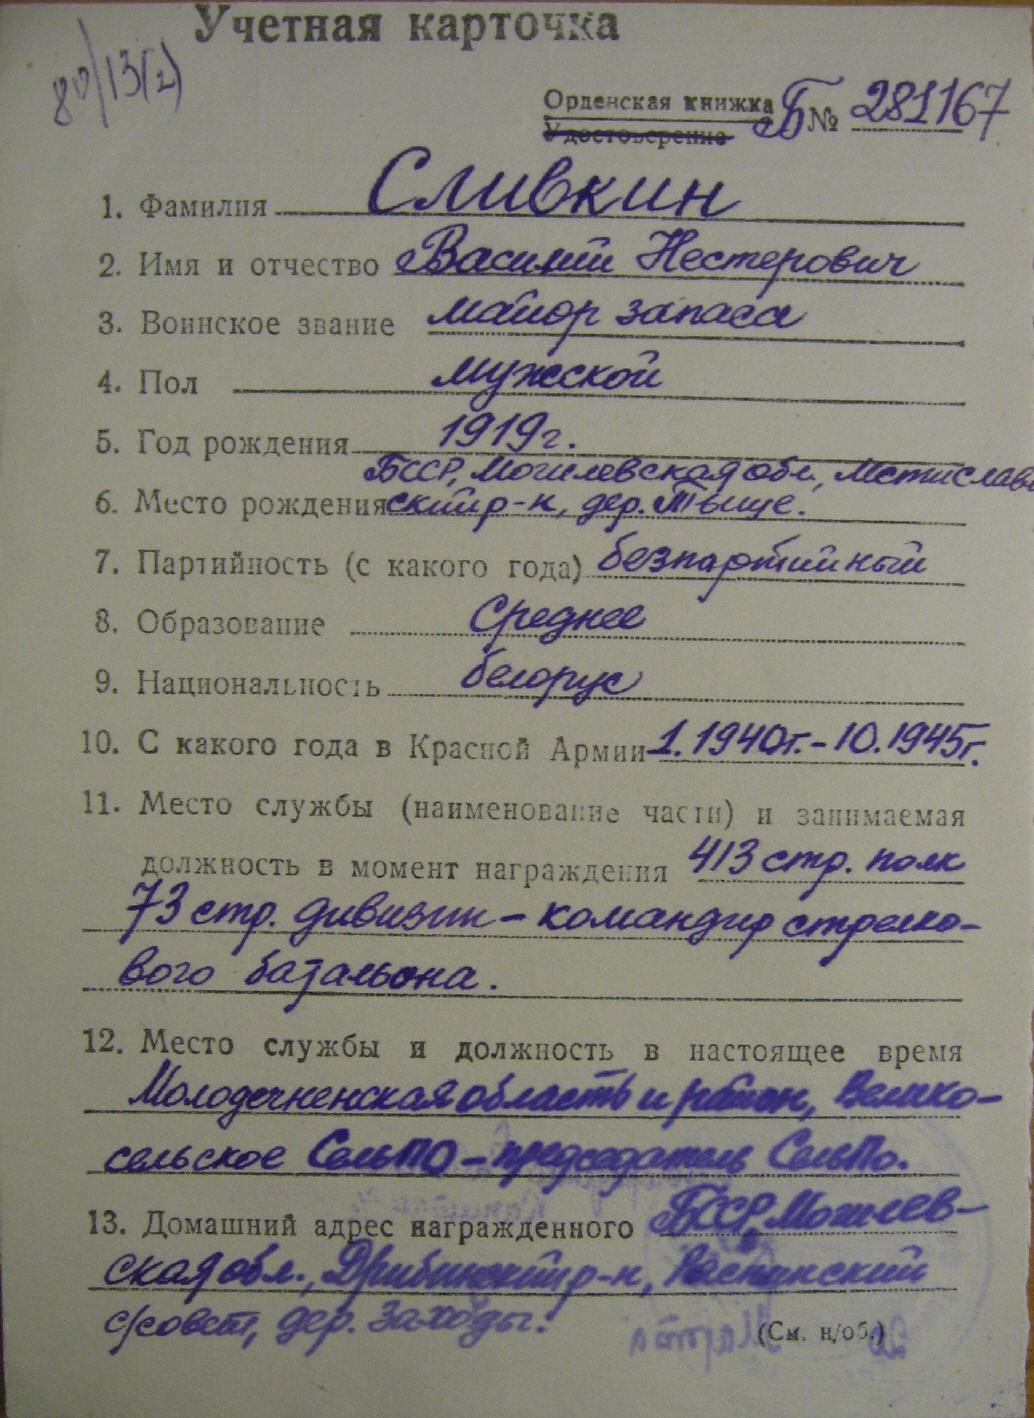 Учетная карточка
80/13(2)
Орденская книжка Б № 281167
Удостоверение
1. Фамилия Сливкин
2. Имя и отчество Василий Нестерович
3. Воинское звание майор запаса
4. Пол мужской
5. Год рождения 1919 г.
БССР, Могилевская обл., Мстислав
6. Место рождения ский р-н, дер.
7. Партийность (с какого года) безпартийный
8. Образование Среднее
9. Национальность белорус
10. С какого года в Красной Армии 1.1940 г. - 10.1945 г.
11. Место службы (наименование части) и занимаемая
должность в момент награждения 413 стр. полк
73 стр. дивизии - командир стрелко-
вого батальона.
12. Место службы и должность в настоящее время
Молодечненская область и район, Велико-
сельское СельПО - председатель СельПо.
13. Домашний адрес награжденного БССР, Могилев-
ская обл., Дрибинский р-н,
с/совет, дер. Заходы.
(См. н/об.)